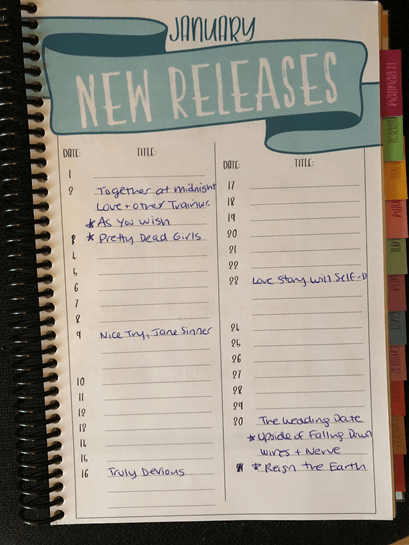 JANUARY
NEW RELEASES
DATE: TITLE:
1
2 Together at Midnight
Love + Other
* As You Wish
3 * Pretty Dead Girls
4
5
6
7
8
9 Nice Try, Jane Sinner
10
11
12
13
14
15
16 Truly Devious
DATE: TITLE:
17
18
19
20
21
22
23 Love Story Will Self-D
24
25
26
27
28
29
30 The Wedding Date
* Upside of Falling Down
Wires + Nerve
31 * Reign the Earth